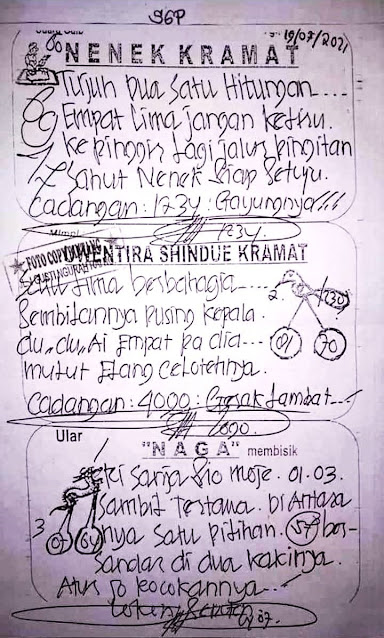 SGP
19/07/2021
NENEK KRAMAT
Tujuh Dua Satu Hitungan....
Empat Lima jangan keliru.
ke pinggir Lagi jalur pingitan
Sahut Nenek Siap Setuju.
Cadangan : 1234 : Gayungnya!!!
1234.
FOTO COPY
WENTIRA SHINDUE KRAMAT
Satu Lima berbahagia....
Sembilannya Pusing Kepala.
du,, du,, Ai Empat Pa dia...
mulut Elang Celotehnya.
2.
01 70
Cadangan : 4000 : Gesak Lambat...
4000.
Ular
"NAGA" membisik
Sio moje. 01.03.
Sambil Tertawa. Di Antara
nya Satu Pilihan. 57 ber-
Sandar di dua kakinya.
3
Atur 50 kocokannya...
07.